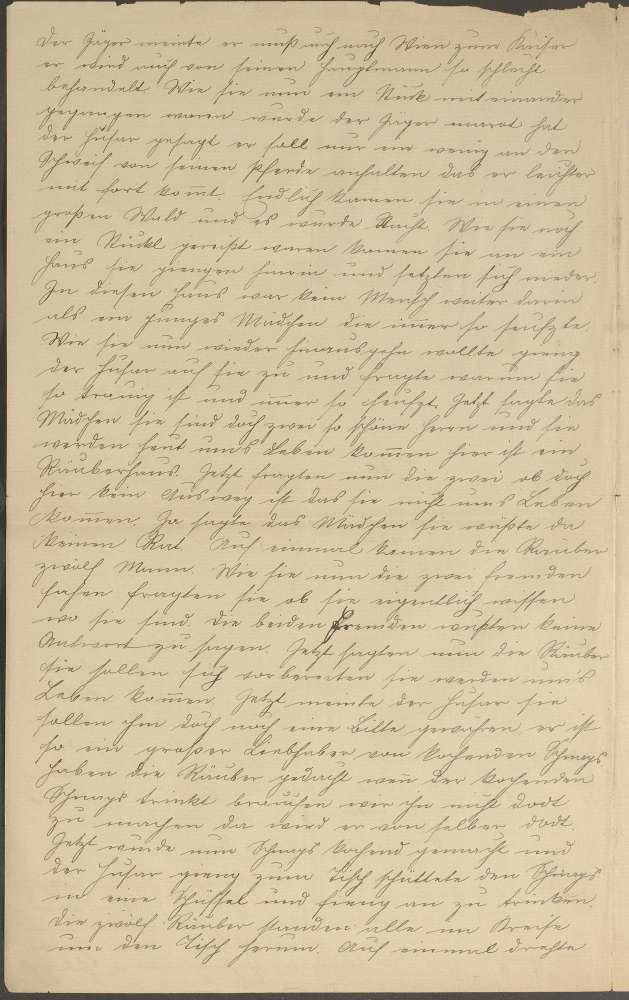 Der Jäger meinte er muß auch nach Wien zum Kaiser
er wird auch von seinen Hauptmann so schlecht
behandelt. Wie sie nun ein Stück mit einander
gegangen waren wurde der Jäger marot hat
der Husar gesagt er soll nur ein wenig an den
Schweif von seinen Pferde anhalten das er leichter
mit fort kom̄t. Endlich kamen sie in einen
großen Wald und es wurde Nacht. Wie sie noch
ein Stückl gereißt waren kamen sie an ein
Haus sie giengen hinein und setzten sich nieder.
In diesen Haus war kein Mensch weiter darin
als ein junges Mädchen die im̄er so seufzte.
Wie sie nun wieder hinausgehn wollte gieng
der Husar auf sie zu und fragte warum sie
so traurig ist und im̄er so seufzt. Jetzt sagte das
Mädchen sie sind doch zwei so schöne Herrn und sie
werden heut um's Leben kom̄en hier ist ein
Räuberhaus. Jetzt fragten nun die zwei ob doch
hier kein Ausweg ist das sie nicht ums Leben
kom̄en. Ja sagte das Mädchen sie wüßte da
keinen Rat. Auf einmal kamen die Räuber
zwölf Mann. Wie sie nun die zwei fremden
sahen fragten sie ob sie eigentlich wissen
wo sie sind. Die beiden Fremden wußten keine
Antwort zu sagen. Jetzt sagten nun die Räuber
sie sollen sich vorbereiten sie werden um's
Leben kom̄en. Jetzt meinte der Husar sie
sollen ihm doch noch eine Bitte gewähren, er ist
so ein großer Liebhaber von kochenden Schnaps
haben die Räuber gedacht wen̄ der kochenden
Schnaps trinkt brauchen wir ihn nicht dodt
zu machen da wird er von selber dodt.
Jetzt wurde nun Schnaps kochend gemacht und
der Husar gieng zum Tisch schüttete den Schnaps
in eine Schüssel und fieng an zu trinken.
Die zwölf Räuber standen alle im Kreise
um den Tisch herum. Auf einmal drehte